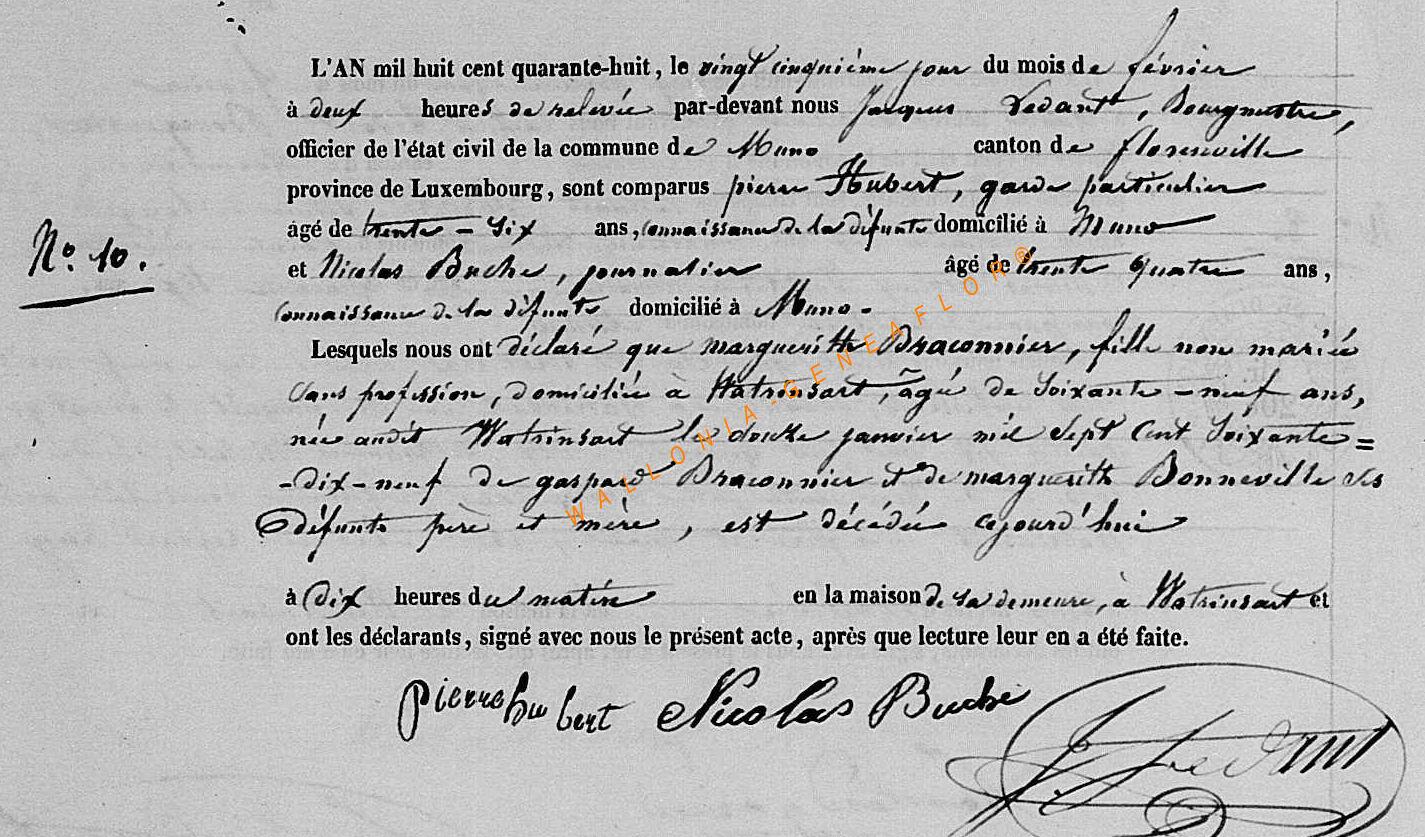 L'AN mil huit cent quarante-huit, le vingt cinquième jour du mois de février
à deux heures de relevée par-devant nous Jacques Dedant, Bourgmestre,
officier de l'état civil de la commune de Muno canton de florenville
province de Luxembourg, sont comparus pierre Hubert, garde particulier
âgé de trente-six ans, connaissance de la défunte domicilié à Muno
N° 10.
et Nicolas Buche, journalier âgé de trente quatre ans,
connaissance de la défunte domicilié à Muno.
Lesquels nous ont déclaré que margueritte Braconnier, fille non mariée
sans profession, domiciliée à Watrinsart, âgée de soixante-neuf ans,
née audit Watrinsart le douze janvier mil sept cent soixante=
-dix-neuf de gaspard Braconnier et de margueritte Bonneville ses
défunts père et mère, est décédée cejourd'hui
à dix heures du matin en la maison de sa demeure, à Watrinsart et
ont les déclarants, signé avec nous le présent acte, après que lecture leur en a été faite.
pierre hubert Nicolas Buche
WALLONIA-GENEAFLOR®